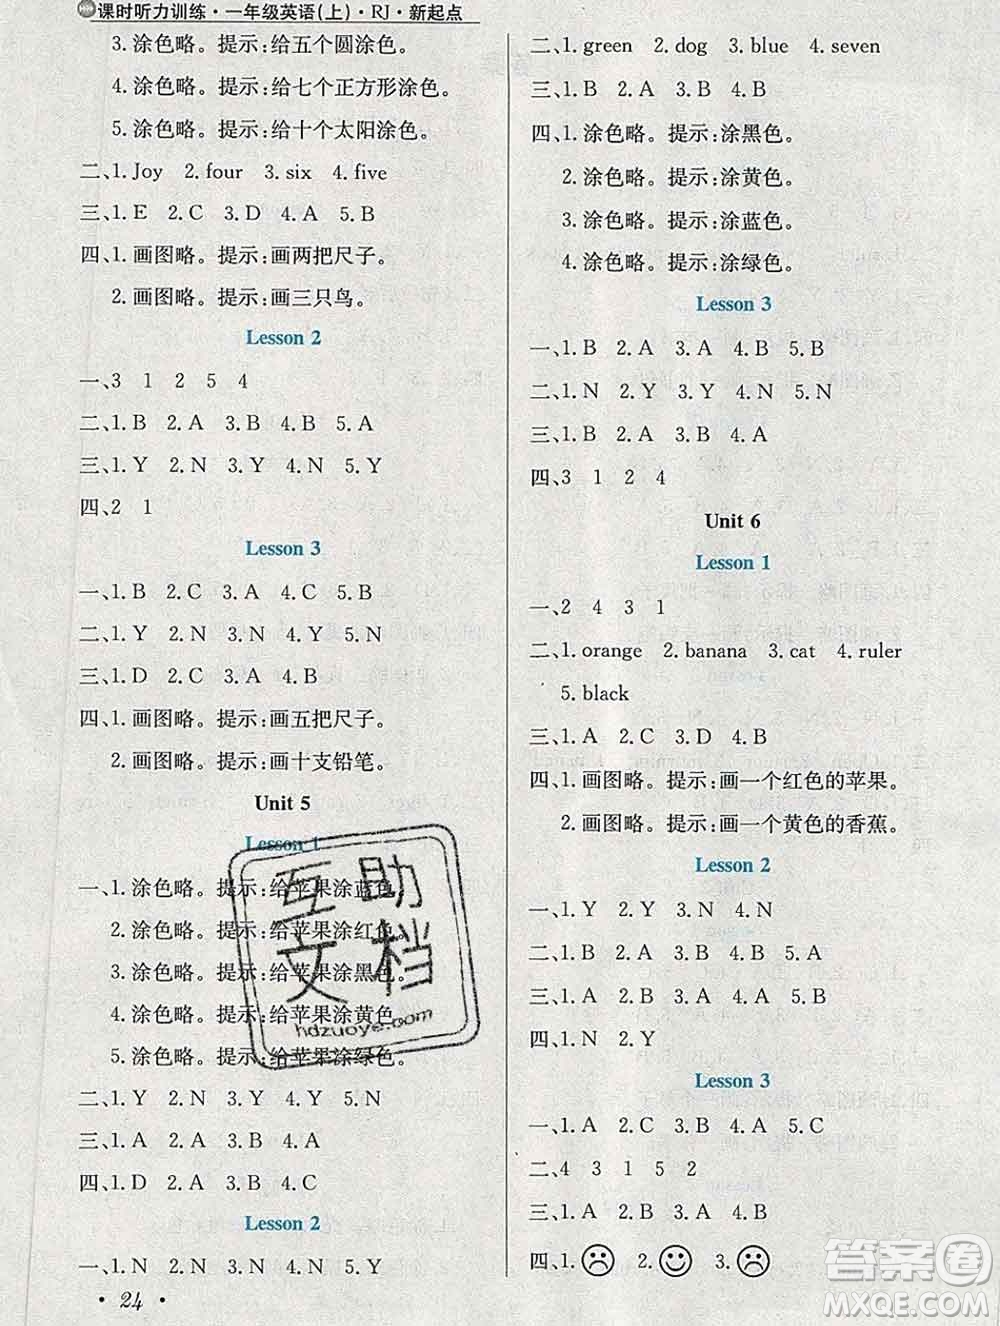 课时听力训练·一年级英语(上)·RJ·新起点
3.涂色略。提示:给五个圆涂色。
4.涂色略。提示:给七个正方形涂色。
5.涂色略。提示:给十个太阳涂色。
二、1.Joy 2.four 3.six 4.five
三、1.E 2.C 3.D 4.A 5.B
四、1.画图略。提示:画两把尺子。
2.画图略。提示:画三只鸟。
Lesson 2
一、3 1 2 5 4
二、1.B 2.A 3.B 4.B 5.A
三、1.Y 2.N 3.Y 4.N 5.Y
四、2 1
Lesson 3
一、1.B 2.C 3.A 4.C 5.A
二、1.Y 2.N 3.N 4.Y 5.Y
三、1.D 2.C 3.A 4.B
四、1.画图略。提示:画五把尺子。
2.画图略。提示:画十支铅笔。
Unit 5
Lesson 1
一、1.涂色略。提示:给苹果涂蓝色。
2.涂色略。提示:给苹果涂红色。
3.涂色略。提示:给苹果涂黑色。
4.涂色略。提示:给苹果涂黄色。
5.涂色略。提示:给苹果涂绿色。
二、1.Y 2.N 3.N 4.Y 5.N
三、1.A 2.C 3.B 4.A
四、1.D 2.A 3.B 4.C
Lesson 2
一、1.N 2.N 3.Y 4.N 5.Y
·24·
二、1.green 2.dog 3.blue 4.seven
三、1.B 2.A 3.B 4.B
四、1.涂色略。提示:涂黑色。
2.涂色略。提示:涂黄色。
3.涂色略。提示:涂蓝色。
4.涂色略。提示:涂绿色。
Lesson 3
一、1.B 2.A 3.A 4.B 5.B
二、1.N 2.Y 3.Y 4.N 5.N
三、1.B 2.A 3.B 4.A
四、3 1 2 4
Unit 6
Lesson 1
一、2 4 3 1
二、1.orange 2.banana 3.cat 4.ruler
5.black
三、1.A 2.C 3.D 4.B
四、1.画图略。提示:画一个红色的苹果。
2.画图略。提示:画一个黄色的香蕉。
Lesson 2
一、1.Y 2.Y 3.N 4.N
二、1.B 2.A 3.B 4.B 5.A
三、1.A 2.A 3.A 4.B 5.B
四、1.N 2.Y
Lesson 3
一、1.A 2.C 3.B 4.A 5.C
二、4 3 1 5 2
三、1.A 2.B 3.A 4.B
四、1. 2. 3.
互助
文档
hdzuoye.com
答案圈
MXQE.COM